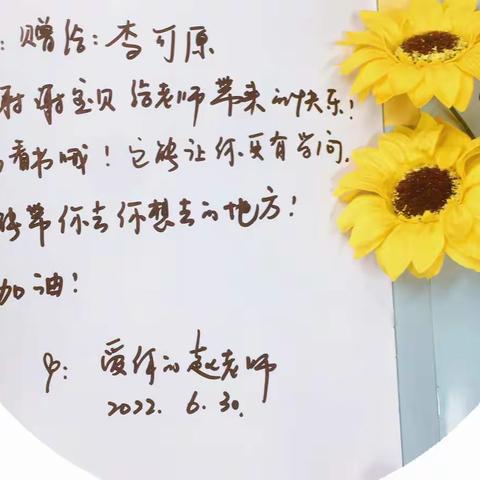 : 赠给: 李可原
谢谢宝贝给老师带来的快乐!
看书哦! 它能让你更有学问.
能带你去你想去的地方!
加油!
爱你的赵老师
2022. 6. 30.